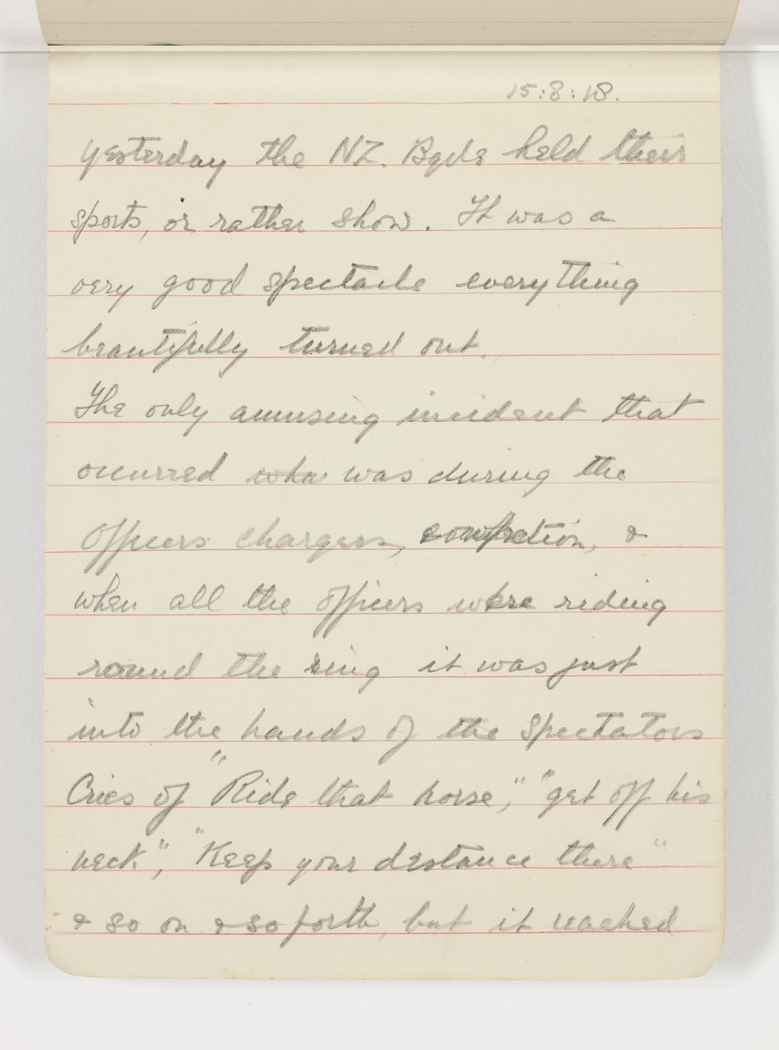 15:8:18.
Yesterday the NZ. Bgde held their
sports, or rather show. It was a
very good spectacle everything
beautifully turned out.
The only amusing incident that
occurred wha was during the
Officers chargers, compention, &
when all the officers were riding
round the ring it was just
into the hands of the spectators
Cries of "Ride that horse", "get off his
neck", "Keep your distance there"
& so on & so forth, but it reached